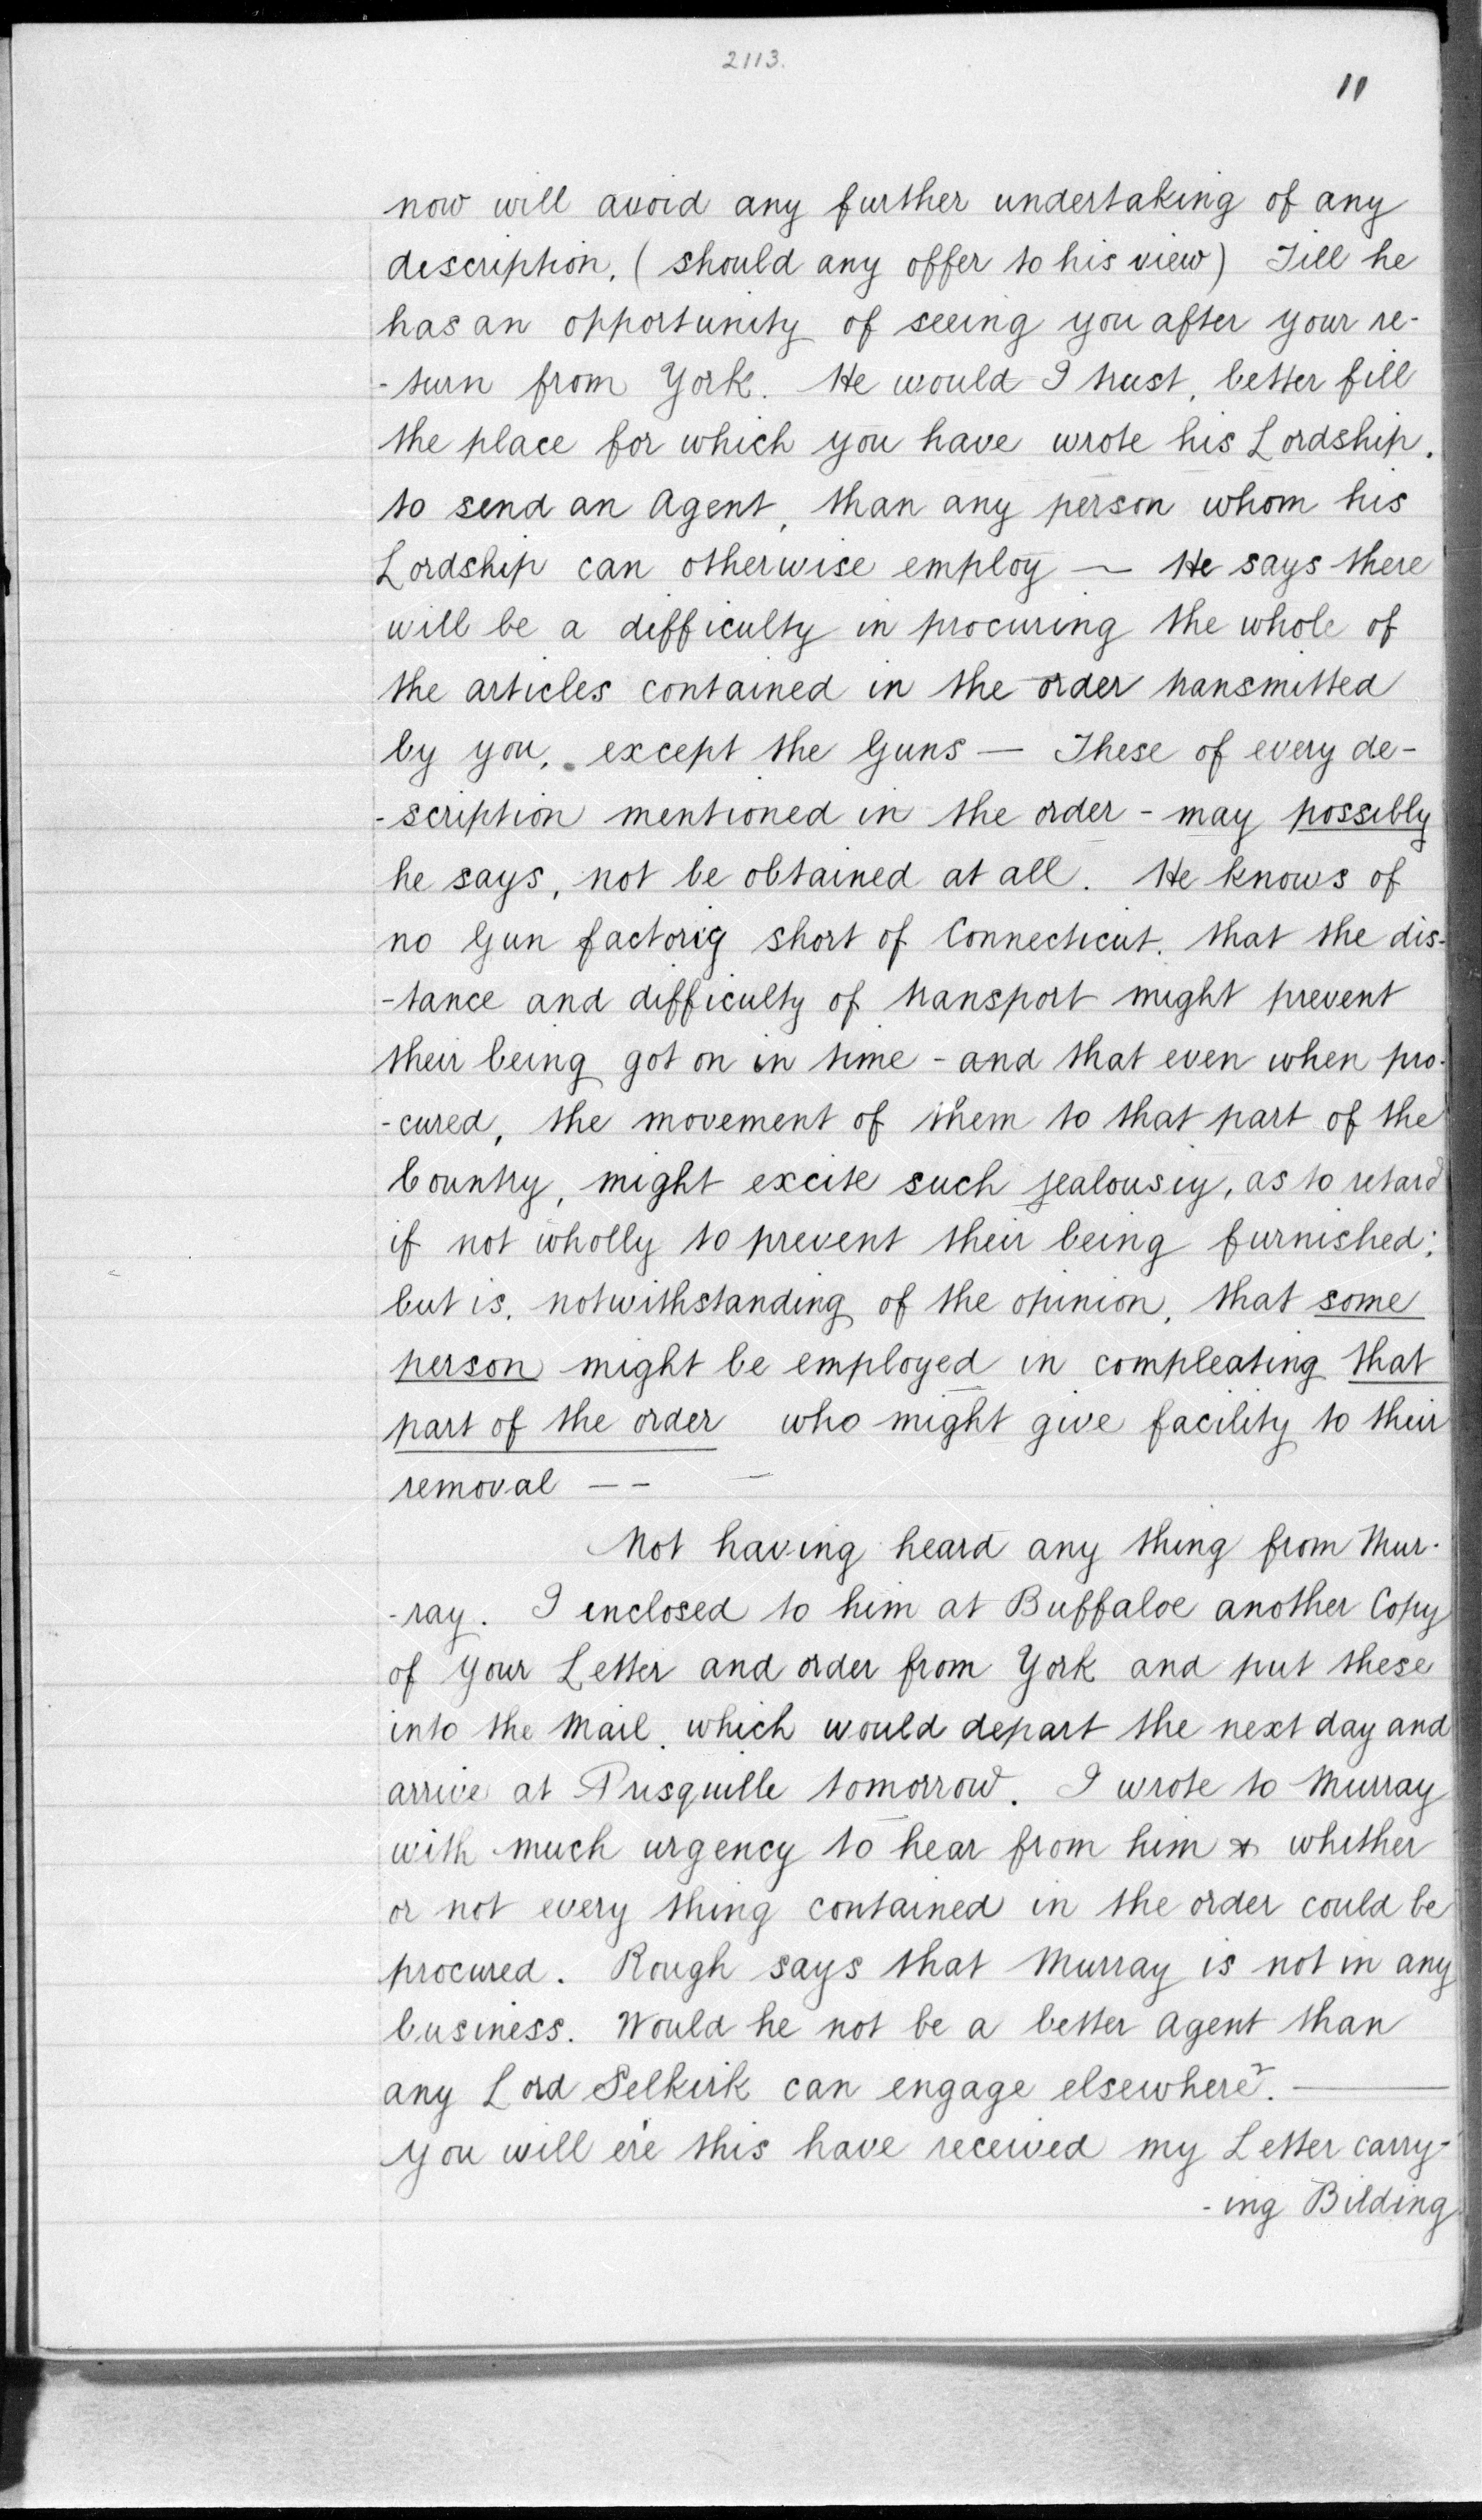 2113.
11
now will avoid any further undertaking of any
description, (should any offer to his view) Till he
has an opportunity of seeing you after your re-
-turn from York. He would I trust, better fill
the place for which you have wrote his Lordship.
to send an Agent, than any person whom his
Lordship can otherwise employ — He says there
will be a difficulty in procuring the whole of
the articles contained in the order transmitted
by you, except the Guns — These of every de-
-scription mentioned in the order - may possibly
he says, not be obtained at all. He knows of
no Gun factory short of Connecticut. that the dis-
-tance and difficulty of transport might prevent
their being got on in time - and that even when pro-
-cured, the movement of them to that part of the
Country, might excite such jealousy, as to retard
if not wholly to prevent their being furnished;
but is, notwithstanding of the opinion, that some
person might be employed in compleating that
part of the order who might give facility to their
removal — —
Not having heard any thing from Mur-
-ray. I enclosed to him at Buffaloe another Copy
of your Letter and order from York and put these
into the Mail, which would depart the next day and
arrive at Prisquille tomorrow. I wrote to Murray
with much urgency to hear from him & whether
or not every thing contained in the order could be
procured. Rough says that Murray is not in any
business. Would he not be a better agent than
any Lord Selkirk can engage elsewhere?. —
You will e're this have received my Letter carry-
-ing Bilding